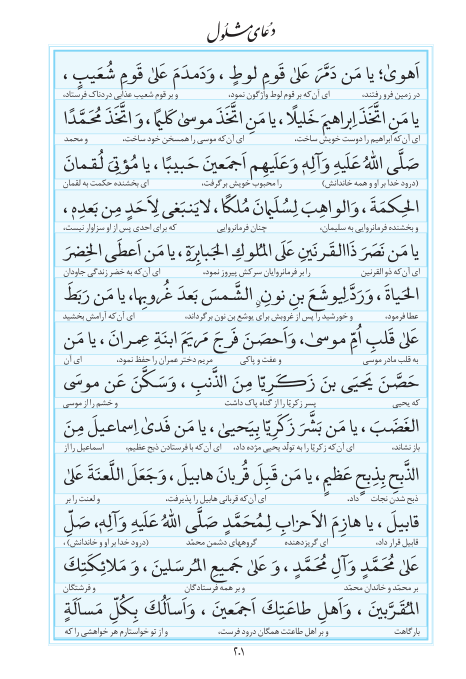 دُعای مشلول
اَهویٰ؛ یا مَن دَمَّرَ عَلیٰ قَومِ لوطٍ ، وَدَمدَمَ عَلیٰ قَومِ شُعَیبٍ ،
در زمین فرو رفتند، ای آن‌که بر قوم لوط واژگون نمود، و بر قوم شعیب عذابی دردناک فرستاد،
یا مَنِ اتَّخَذَ اِبراهیمَ خَلیلًا ، یا مَنِ اتَّخَذَ موسیٰ کَلیمًا ، وَ اتَّخَذَ مُحَمَّدًا
ای آن‌که ابراهیم را دوست خویش ساخت، ای آن‌که موسی را همسخن خود ساخت، و محمد
صَلَّی اللهُ عَلَیهِ وَآلِهِ وَعَلَیهِم اَجمَعینَ حَبیبًا ، یا مُؤتِیَ لُقمانَ
(درود خدا بر او و همه خاندانش) را محبوب خویش برگرفت، ای بخشنده حکمت به لقمان
الحِکمَةَ ، وَالواهِبَ لِسُلَیمانَ مُلکًا ، لایَنبَغی لِاَحَدٍ مِن بَعدِهِ ،
و بخشنده فرمانروایی به سلیمان، چنان فرمانروایی که برای احدی پس از او سزاوار نیست،
یا مَن نَصَرَ ذَاالقَرنَینِ عَلَی المُلوکِ الجَبابِرَةِ ، یا مَن اَعطَی الخِضرَ
ای آن‌که ذو القرنین را بر فرمانروایان سرکش پیروز نمود، ای آن‌که به خضر زندگی جاودان
الحَیاةَ ، وَرَدَّ لِیوشَعَ بنِ نونٍ الشَّمسَ بَعدَ غُروبِها، یا مَن رَبَطَ
عطا فرمود، و خورشید را پس از غروبش برای یوشع بن نون برگرداند، ای آن‌که آرامش بخشید
عَلیٰ قَلبِ اُمِّ موسیٰ، وَاَحصَنَ فَرجَ مَریَمَ ابنَةِ عِمرانَ ، یا مَن
به قلب مادر موسی و عفت و پاکی مریم دختر عمران را حفظ نمود، ای آن
حَصَّنَ یَحیَی بنَ زَکَریّا مِنَ الذَّنبِ ، وَسَکَّنَ عَن موسَی
که یحیی پسر زکریّا را از گناه پاک داشت و خشم را از موسی
الغَضَبَ ، یا مَن بَشَّرَ زَکَریّا بِیَحییٰ ، یا مَن فَدیٰ اِسماعیلَ مِنَ
باز نشاند، ای آن‌که زکریّا را به تولّد یحیی مژده داد، ای آن‌که با فرستادن ذبح عظیم، اسماعیل را از
الذَّبحِ بِذِبحٍ عَظیمٍ ، یا مَن قَبِلَ قُربانَ هابیلَ ، وَجَعَلَ اللَّعنَةَ عَلیٰ
ذبح شدن نجات داد، ای آن‌که قربانی هابیل را پذیرفت، و لعنت را بر
قابیلَ ، یا هازِمَ الاَحزابِ لِمُحَمَّدٍ صَلَّی اللهُ عَلَیهِ وَآلِهِ، صَلِّ
قابیل قرار داد، ای گریزدهنده گروههای دشمن محمّد (درود خدا بر او و خاندانش)،
عَلیٰ مُحَمَّدٍ وَآلِ مُحَمَّدٍ ، وَ عَلیٰ جَمیعِ المُرسَلینَ ، وَ مَلائِکَتِکَ
بر محمّد و خاندان محمّد و بر همه فرستادگان و فرشتگان
المُقَرَّبینَ ، وَاَهلِ طاعَتِکَ اَجمَعینَ ، وَاَساَلُکَ بِکُلِّ مَساَلَةٍ
بارگاهت و بر اهل طاعتت همگان درود فرست، و از تو خواستارم هر خواهشی را که
۲۰۱